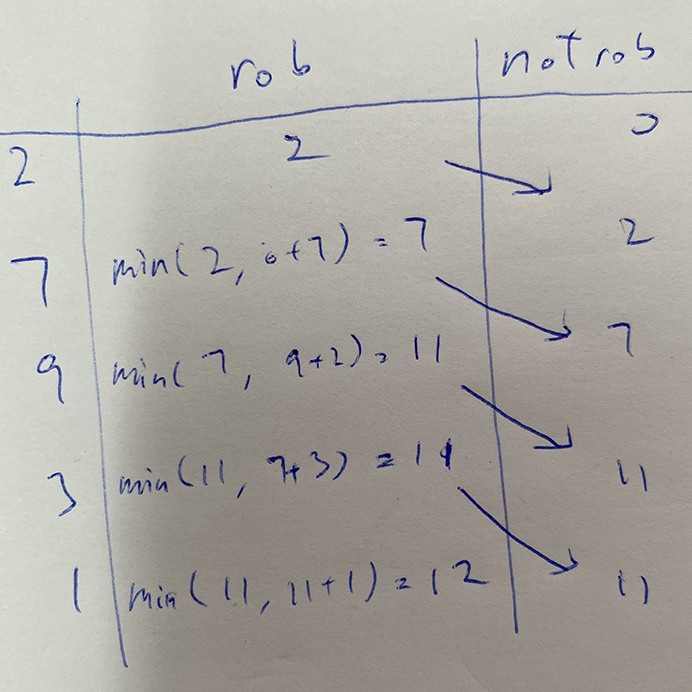 rob not rob
2 2 0
7 min(2, 0+7) = 7 2
9 min(7, 9+2) = 11 7
3 min(11, 7+3) = 11 11
1 min(11, 11+1) = 12 11